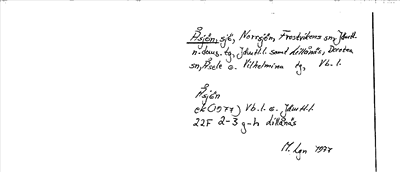 Åsjön, sjö, Norrsjön, Frostvikens sn, Jämtl.
n. daus. tg, Jämtl.l. samt Lillånäs, Dorotea
sn, Åsele o. Vilhelmina tg, Vb. l.
Åsjön
ek (1977) Vb. l. o. Jämtl.l.
22F 2-3 g-h Lillånäs
M. Lgn 1977